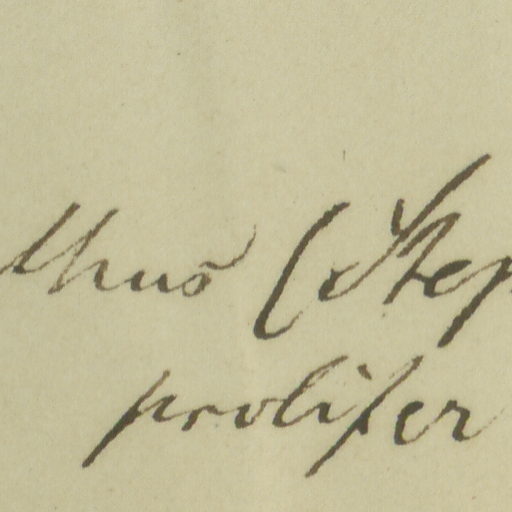 thus (Step
prolifer